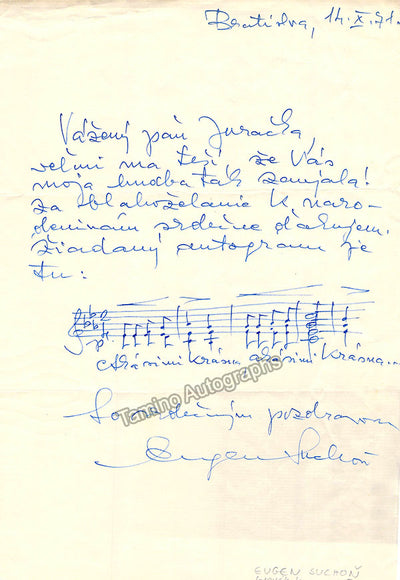 Bratislva, 14.X.71.
Vážený pán Juračka,
veľmi ma teší, že Vás
moja hudba tak zaujala!
Za blahoželanie k naro-
deninám srdečne ďakujem.
Žiadaný autogram je
tu:
p
krásna krásna...
So srdečným pozdravom
Eugen Suchoň
Tamino Autographs
EUGEN SUCHOŇ